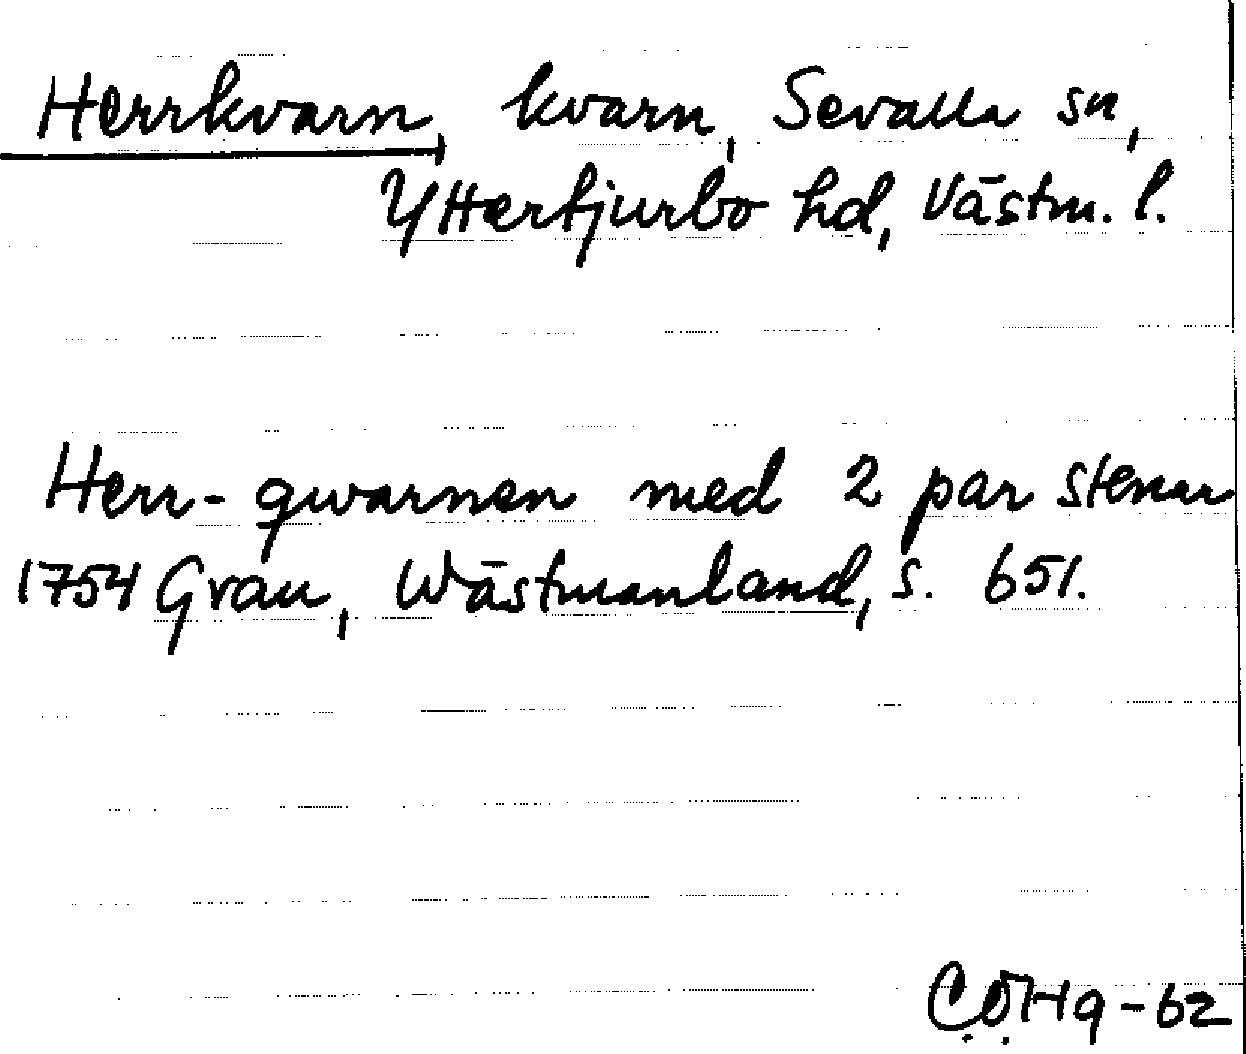 Herrkvarn, kvarn, Sevalla sn,
Yttertjurbo hd, Västm. l.
Herr-qwarnen med 2 par stenar
1754 Grau, Wästmanland, s. 651.
CÖHg-62